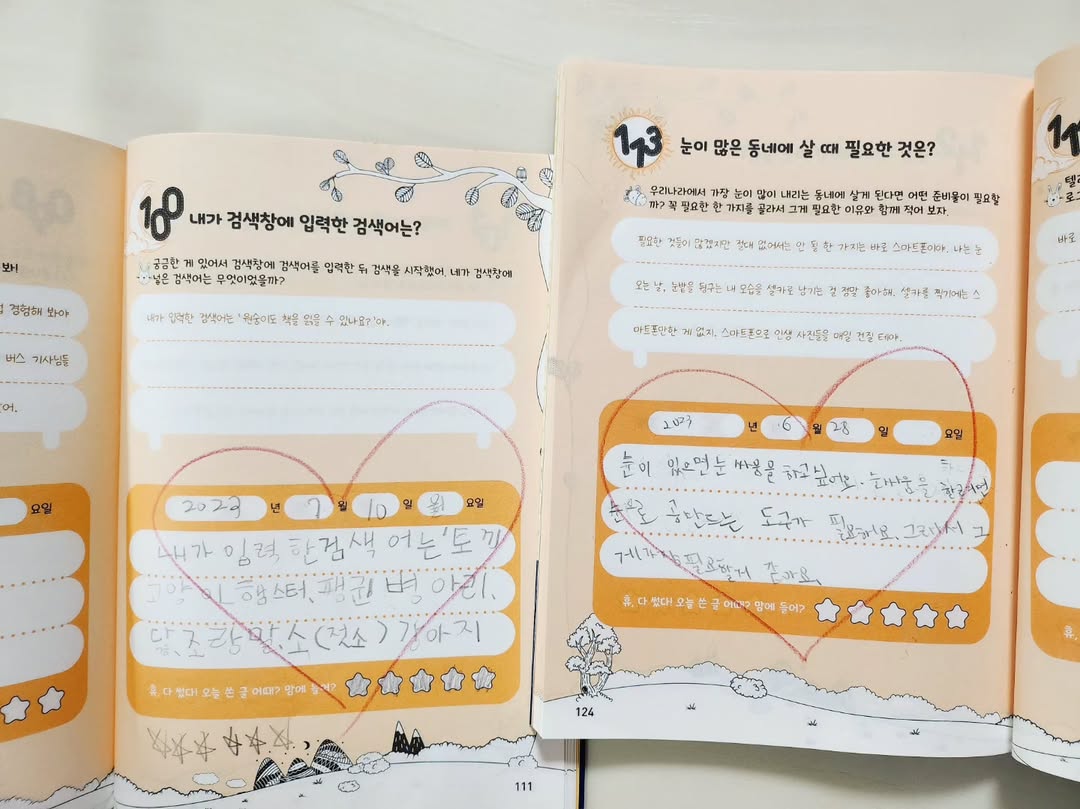 봐!
경험해 봐야
버스 기사님들
어.
요일
100 내가 검색창에 입력한 검색어는?
궁금한 게 있어서 검색창에 검색어를 입력한 뒤 검색을 시작했어. 네가 검색창에
넣은 검색어는 무엇이었을까?
내가 입력한 검색어는 '원숭이도 책을 읽을 수 있나요?'야.
2023 년 7 월 10 일 월 요일
내가 입력 한 검색 어는 '토끼
고양이, 햄스터, 팽귄 병아리,
닭, 조랑말, 소(젖소) 강아지
휴, 다 썼다! 오늘 쓴 글 어때? 맘에 들어?
111
113 눈이 많은 동네에 살 때 필요한 것은?
우리나라에서 가장 눈이 많이 내리는 동네에 살게 된다면 어떤 준비물이 필요할
까? 꼭 필요한 한 가지를 골라서 그게 필요한 이유와 함께 적어 보자.
필요한 것들이 많겠지만 절대 없어서는 안 될 한 가지는 바로 스마트폰이야. 나는 눈
오는 날, 눈밭을 뒹구는 내 모습을 셀카로 남기는 걸 정말 좋아해. 셀카를 찍기에는 스
마트폰만한 게 없지. 스마트폰으로 인생 사진들을 매일 건질 테야.
2023 년 6 월 28 일 요일
눈이 있으면 눈 싸움을 하고싶어요. 눈싸움을 하려면
눈으로 공만드는 도구가 필요해요. 그래서 그
게 가장 필요할거 같아요.
휴, 다 썼다! 오늘 쓴 글 어때? 맘에 들어?
124
텔
로
바로
휴,